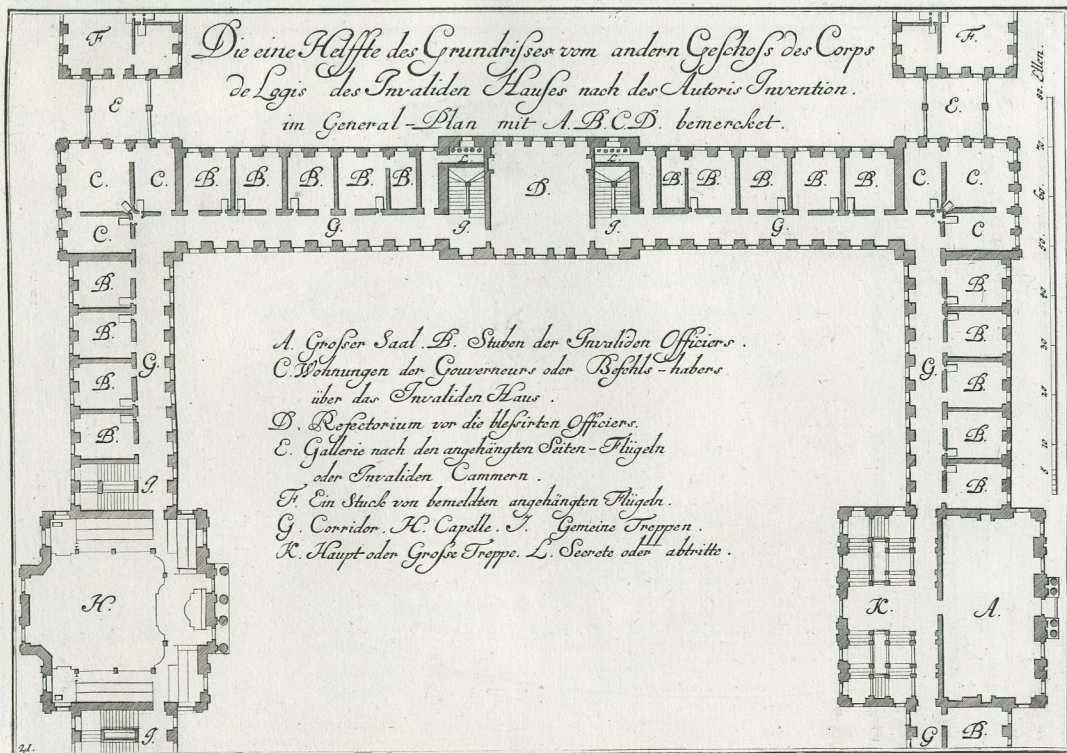 Die eine Helffte des Grundrisses vom andern Geschoss des Corps
de Logis des Invaliden Hauses nach des Autoris Invention.
im General-Plan mit A.B.C.D. bemercket.
F.
F.
E
E.
C. C. B. B. B. B. B. L. D. L. B. B. B. B. B. C. C.
C. G. J. J. G. C
B. B.
B. G. G. B.
B. B.
B. B.
J. B.
H. K. A.
J. G B.
A. Grosser Saal. B. Stuben der Invaliden Officiers.
C. Wohnungen der Gouverneurs oder Befehls-habers
über das Invaliden Haus.
D. Refectorium vor die blessirten Officiers.
E. Gallerie nach den angehängten Seiten-Flügeln
oder Invaliden Cammern.
F. Ein Stuck von bemeldten angehängten Flügeln.
G. Corridor. H. Capelle. J. Gemeine Treppen.
K. Haupt oder Grosse Treppe. L. Secrete oder abtritte.
80. Ellen.
70
60
50
40
30
20
10
5
21.